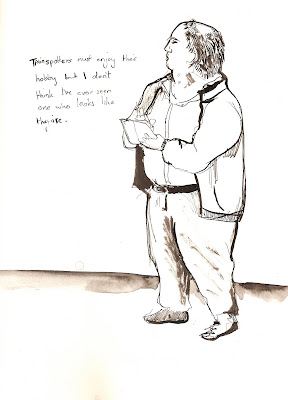 Trainspotters must enjoy their
hobby but I don't
think I've ever seen
one who looks like
they are.